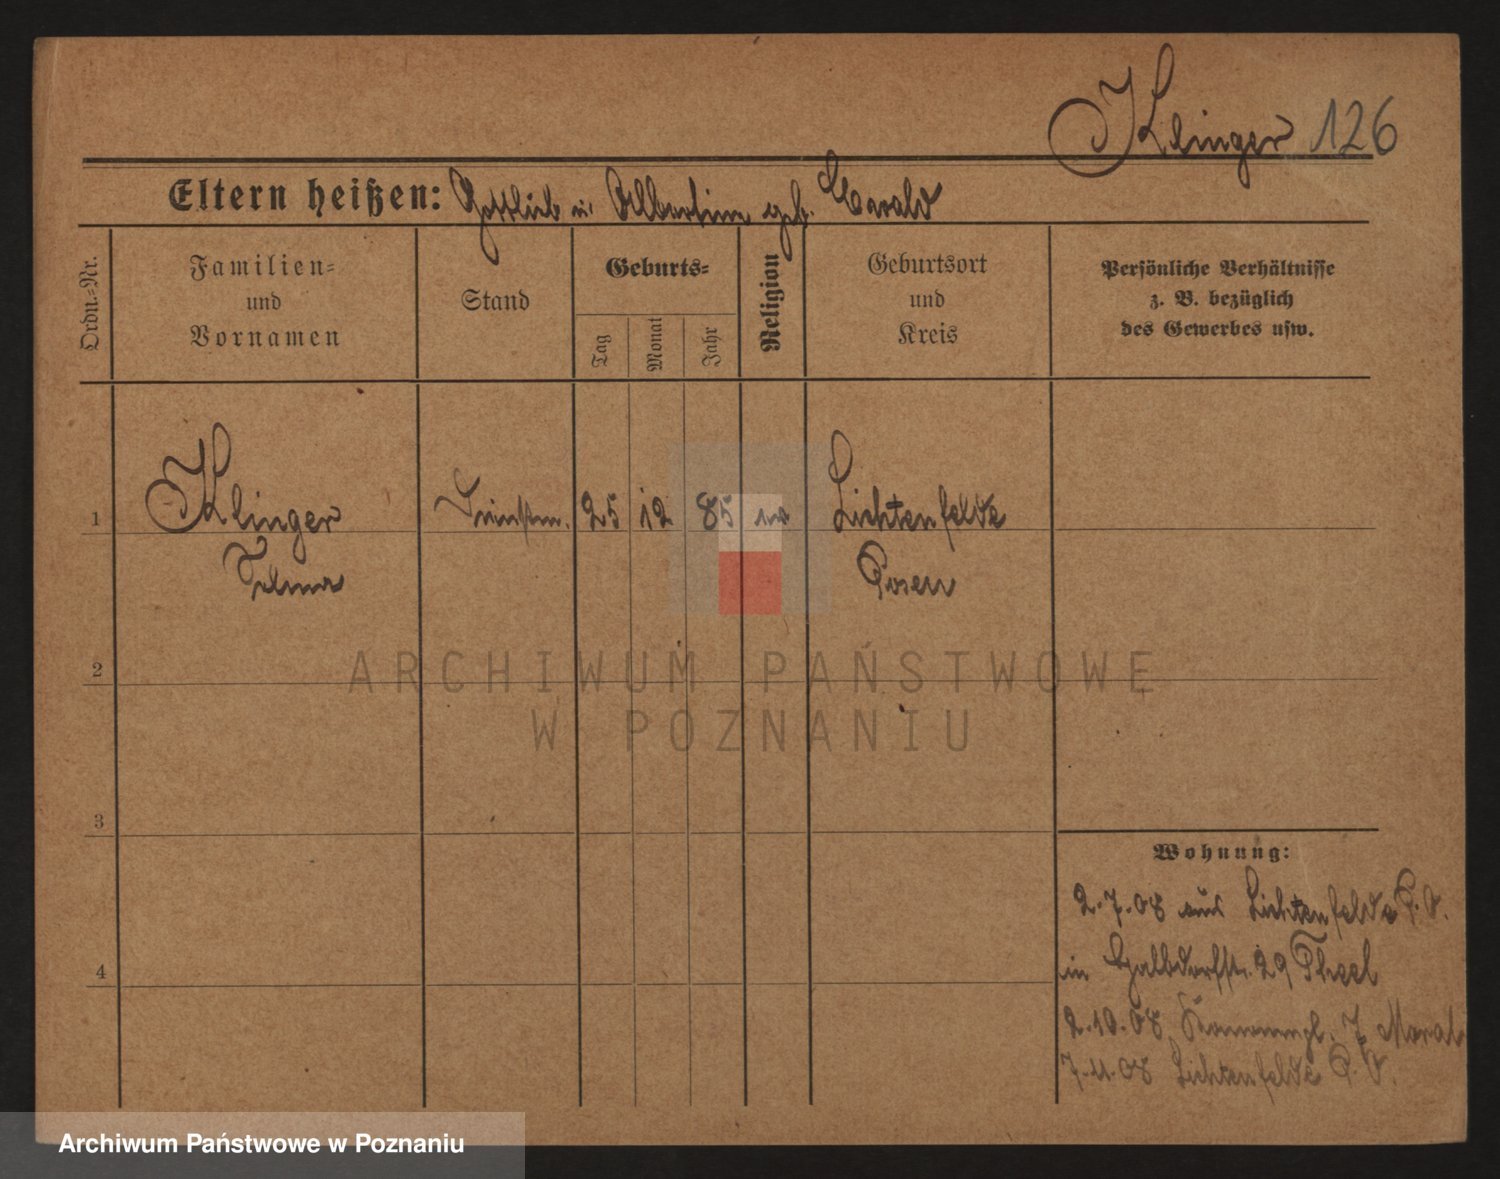 Klinger 126
Eltern heißen: Gottlieb u. Albertine geb. Ewald
Ordn.-Nr.
Familien- und Vornamen
Stand
Geburts-
Tag
Monat
Jahr
Religion
Geburtsort und Kreis
Persönliche Verhältnisse
z. B. bezüglich
des Gewerbes usw.
1 Klinger 25 12 85 Lichtenfelde
Posen
2
3
4
Wohnung:
2.7.08 aus Lichtenfelde P. O.
in 29
2.10.08 7
7.11.08 Lichtenfelde P. O.
ARCHIWUM PAŃSTWOWE
W POZNANIU
Archiwum Państwowe w Poznaniu